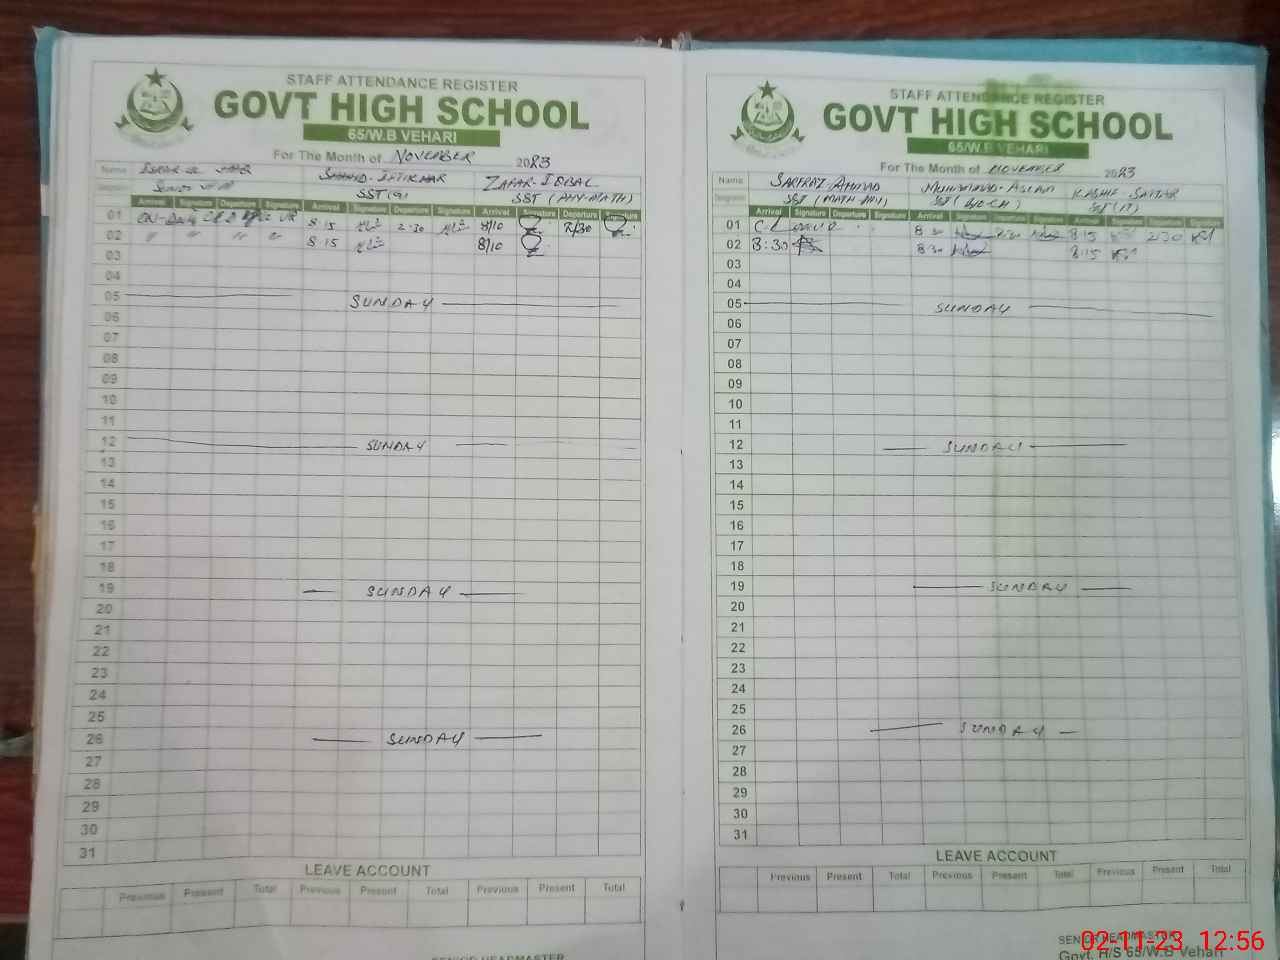 STAFF ATTENDANCE REGISTER
GOVT HIGH SCHOOL
65/W.B VEHARI
For The Month of NOVEMBER 2023
Name IFTIKHAR ZAFAR IQBAL
SST(G) SST (PHY-MATH)
Arrival Signature Departure Signature Arrival Signature Departure Signature Arrival Signature Departure Signature
01 ON-Duty 8 15 2-30 8/10 2/30
02 " " " " 8 15 8/10
03
04
05 SUNDAY
06
07
08
09
10
11
12 SUNDAY
13
14
15
16
17
18
19 SUNDAY
20
21
22
23
24
25
26 SUNDAY
27
28
29
30
31
LEAVE ACCOUNT
Previous Present Total Previous Present Total Previous Present Total
SENIOR HEADMASTER
STAFF ATTENDANCE REGISTER
GOVT HIGH SCHOOL
65/W.B VEHARI
For The Month of NOVEMBER 2023
Name SARFRAZ AHMAD MUHAMMAD ASLAM KASHIF SATTAR
SST (MATH-PHY) SST (BIO-CH) SST (IT)
Arrival Signature Departure Signature
01 C L 8 30 2 30 8 15 2 30
02 8:30 8 30 8 15
03
04
05 SUNDAY
06
07
08
09
10
11
12 SUNDAY
13
14
15
16
17
18
19 SUNDAY
20
21
22
23
24
25
26 SUNDAY
27
28
29
30
31
LEAVE ACCOUNT
Previous Present Total Previous Present Total Previous Present Total
SENIOR HEADMASTER
Govt. H/S 65/W.B Vehari
02-11-23 12:56